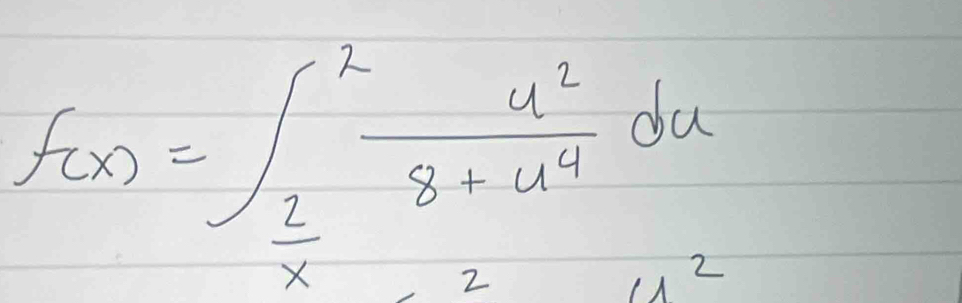 f(x) = ∫_{2/x}^{2} u²/(8 + u⁴) du
2 u²